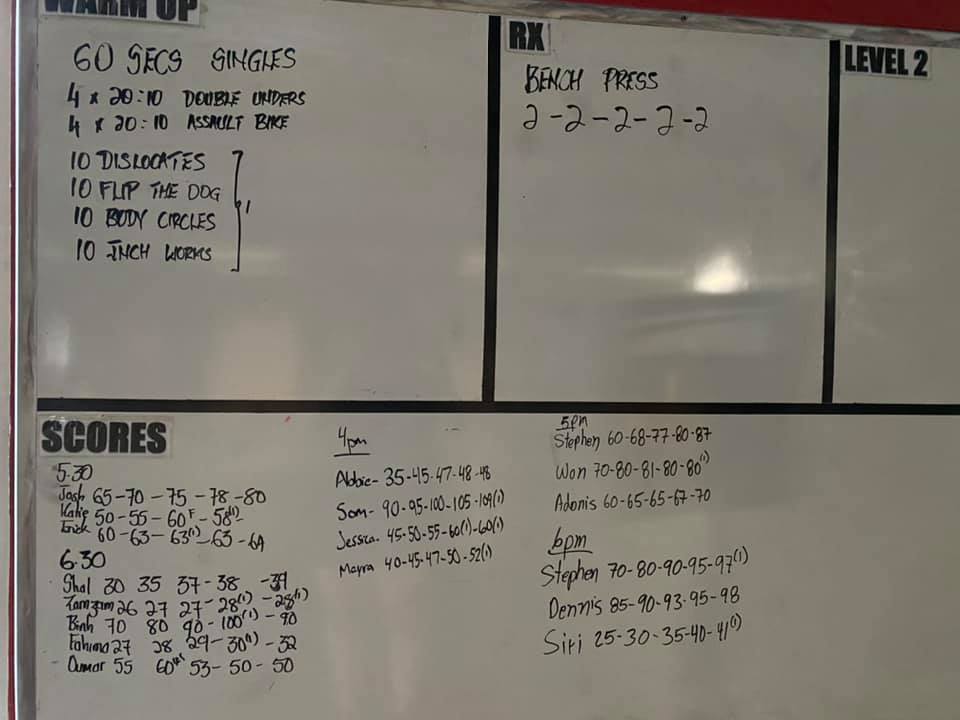 WARM UP
60 SECS SINGLES
4 x 20:10 DOUBLE UNDERS
4 x 20:10 ASSAULT BIKE
10 DISLOCATES
10 FLIP THE DOG
10 BODY CIRCLES
10 INCH WORMS
RX
BENCH PRESS
2-2-2-2-2
LEVEL 2
SCORES
5.30
Josh 65-70-75-78-80
Katie 50-55-60F-58(1)-
Erick 60-63-63(1)-63-64
6.30
Shal 30 35 37-38-39
26 27 27-28(1)-28(1)
Binh 70 80 90-100(1)-90
Fahima 27 28 29-30(1)-32
Oumar 55 60 53-50-50
4pm
Abbie-35-45-47-48-48
Som-90-95-100-105-109(1)
Jessica-45-50-55-60(1)-60(1)
Mayra 40-45-47-50-52(1)
5pm
Stephen 60-68-77-80-87
Won 70-80-81-80-80(1)
Adonis 60-65-65-67-70
6pm
Stephen 70-80-90-95-97(1)
Dennis 85-90-93-95-98
Siri 25-30-35-40-41(1)